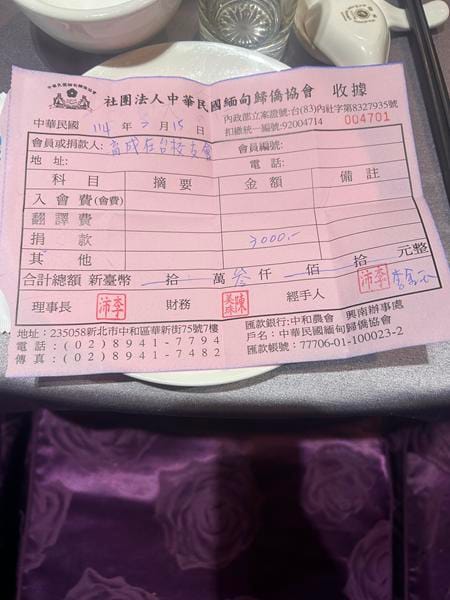 社團法人中華民國緬甸歸僑協會 收據
內政部立案證號:台(83)內社字第8327935號
扣繳統一編號:92004714 004701
中華民國 114 年 3 月 15 日
會員或捐款人: 育成在台校友會 會員編號:
地址: 電話:
科目 摘要 金額 備註
入會費(會費)
翻譯費
捐款 3000.-
其他
合計總額 新臺幣 拾 萬 叁 仟 佰 拾 元整
理事長 李沛 財務 陳美珠 經手人 李沛
地址:235058新北市中和區華新街75號7樓
電話:(02)8941-7794
傳真:(02)8941-7482
匯款銀行:中和農會 興南辦事處
戶名:中華民國緬甸歸僑協會
匯款帳號:77706-01-100023-2